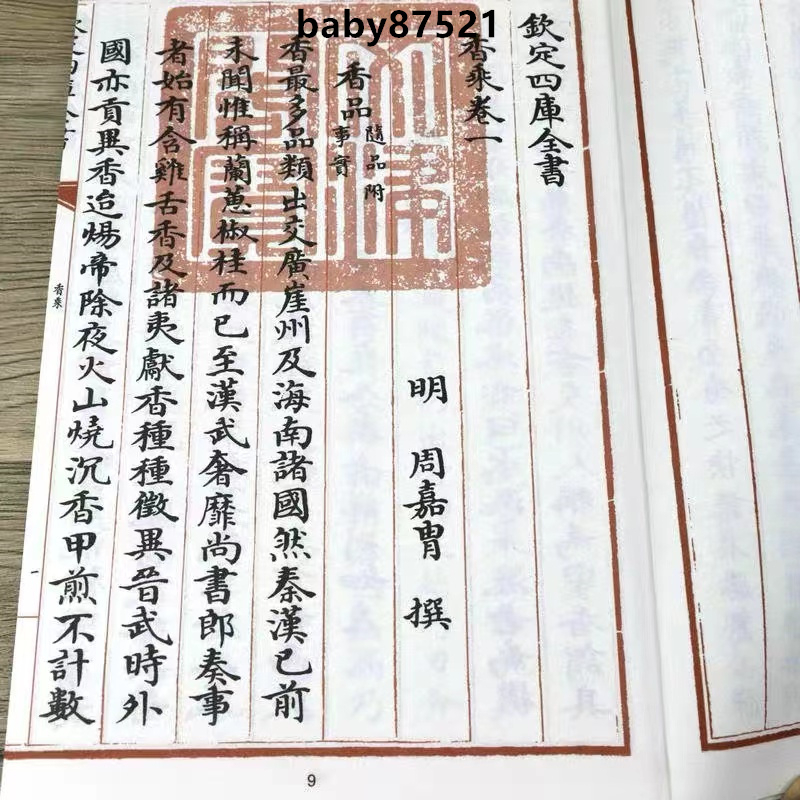 baby87521
欽定四庫全書
香乘卷一
明 周嘉胄 撰
香品 隨品附事實
香最多品類出交廣崖州及海南諸國然秦漢已前
未聞惟稱蘭蕙椒桂而已至漢武奢靡尚書郎奏事
者始有含雞舌香及諸夷獻香種種徵異晉武時外
國亦貢異香迨煬帝除夜火山燒沉香甲煎不計數
香乘
一
9